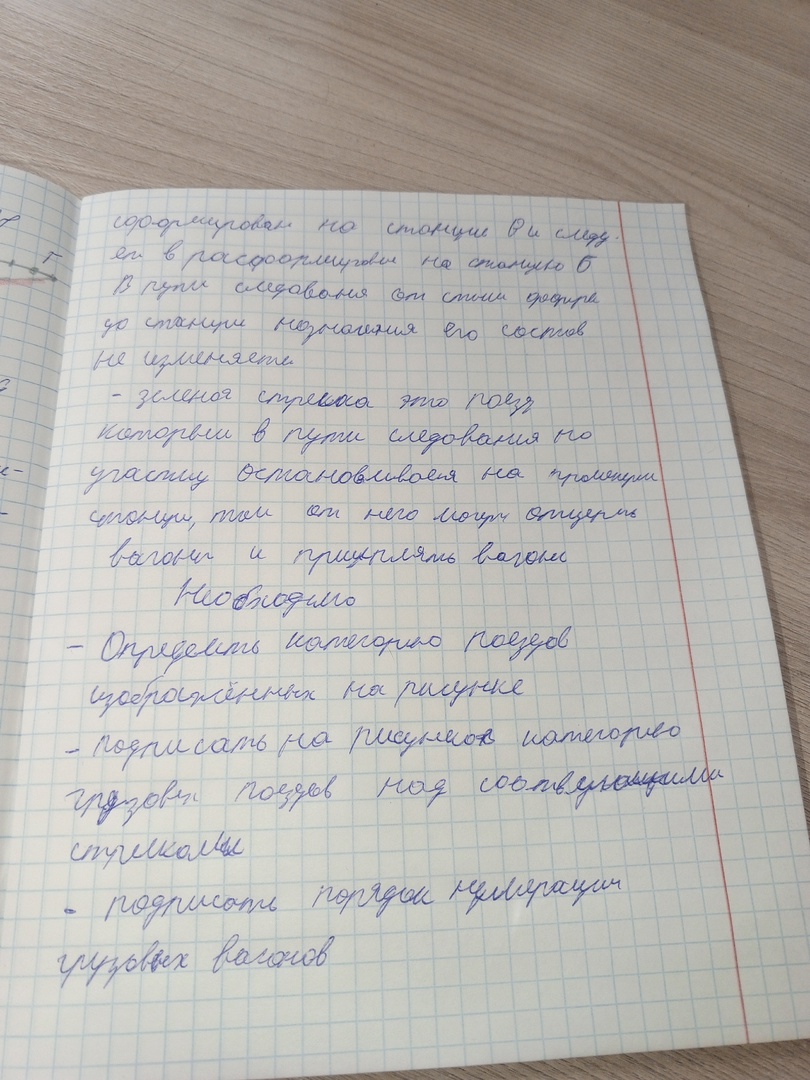 сформирован на станции В и следу-
ет в расформировы на станцию Б
В пути следования от стыи формир
до станции назначения его состав
не изменяетя
- зеленая стрелка это поезд
который в пути следования по
участку останавливаея на промежут
станци, там от него могут отцепть
вагоны и прицеплять вагоны
Необходимо
- Определить категорию поездов
изображённых на рисунке
- подписать на рисунков категорию
грузовы поездов над соотвующими
стрелкамы
- подписать порядок нумерации
грузовых вагонов
Г